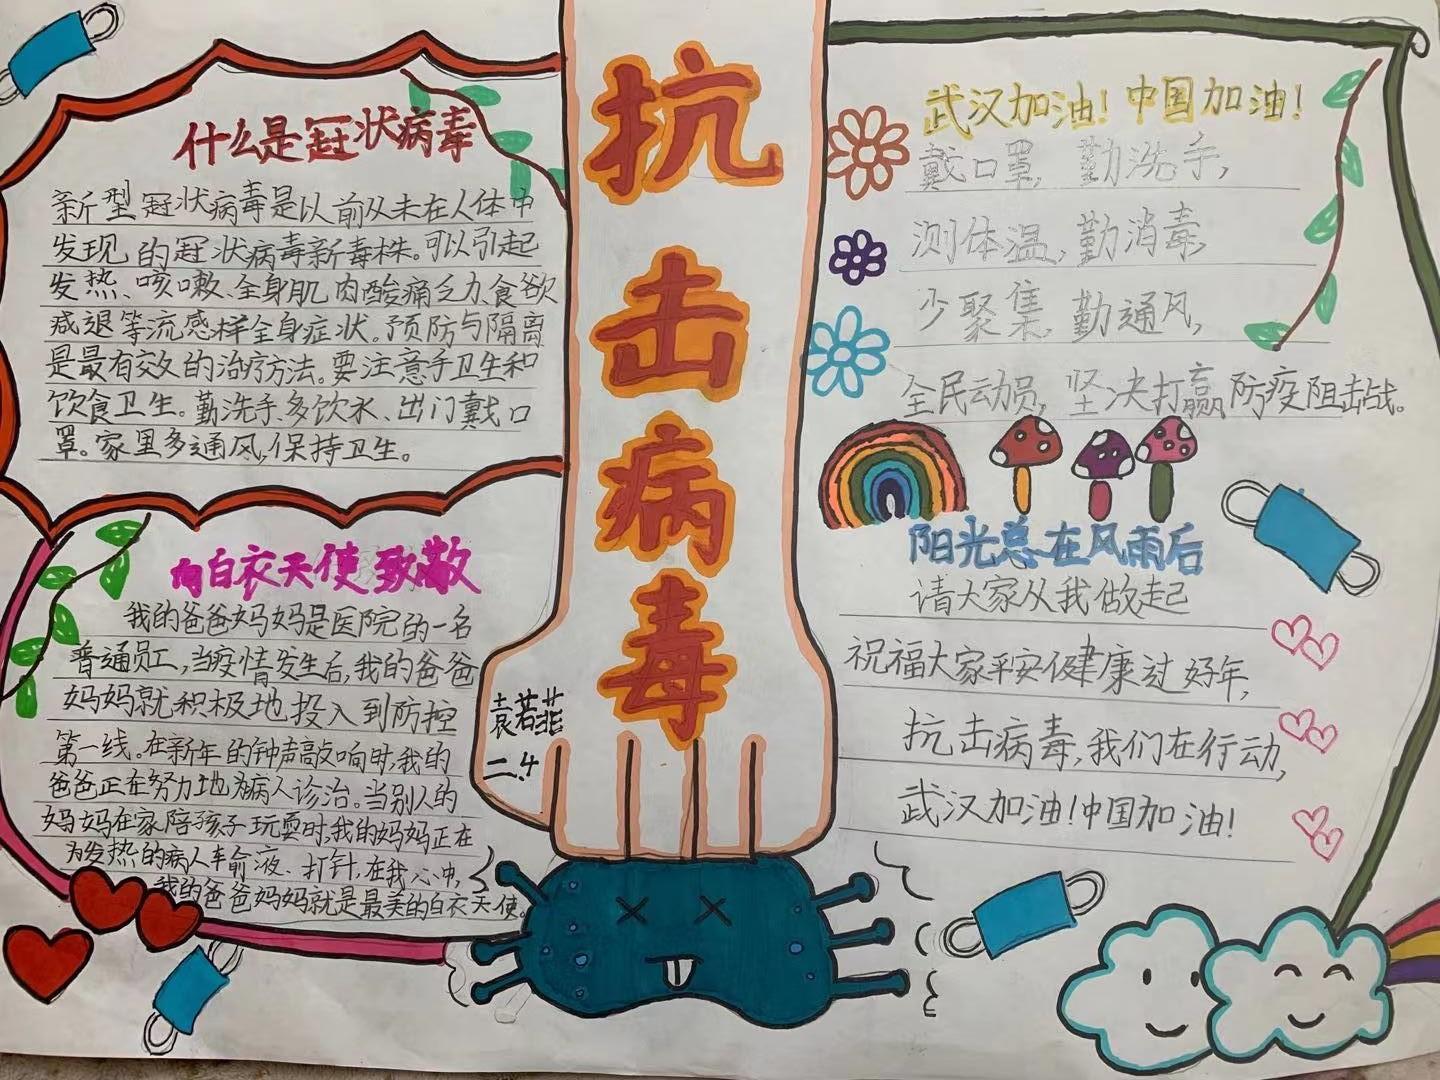 什么是冠状病毒
新型冠状病毒是以前从未在人体中
发现的冠状病毒新毒株。可以引起
发热、咳嗽、全身肌肉酸痛乏力、食欲
减退等流感样全身症状。预防与隔离
是最有效的治疗方法。要注意手卫生和
饮食卫生。勤洗手、多饮水、出门戴口
罩。家里多通风,保持卫生。
向白衣天使致敬
我的爸爸妈妈是医院的一名
普通员工,当疫情发生后,我的爸爸
妈妈就积极地投入到防控
第一线。在新年的钟声敲响时,我的
爸爸正在努力地为病人诊治。当别人的
妈妈在家陪孩子玩耍时,我的妈妈正在
为发热的病人车输液、打针,在我心中,
我的爸爸妈妈就是最美的白衣天使。
抗
击
病
毒
袁若菲
二.4
武汉加油!中国加油!
戴口罩,勤洗手,
测体温,勤消毒,
少聚集,勤通风,
全民动员,坚决打赢防疫阻击战。
阳光总在风雨后
请大家从我做起
祝福大家平安健康过好年,
抗击病毒,我们在行动,
武汉加油!中国加油!